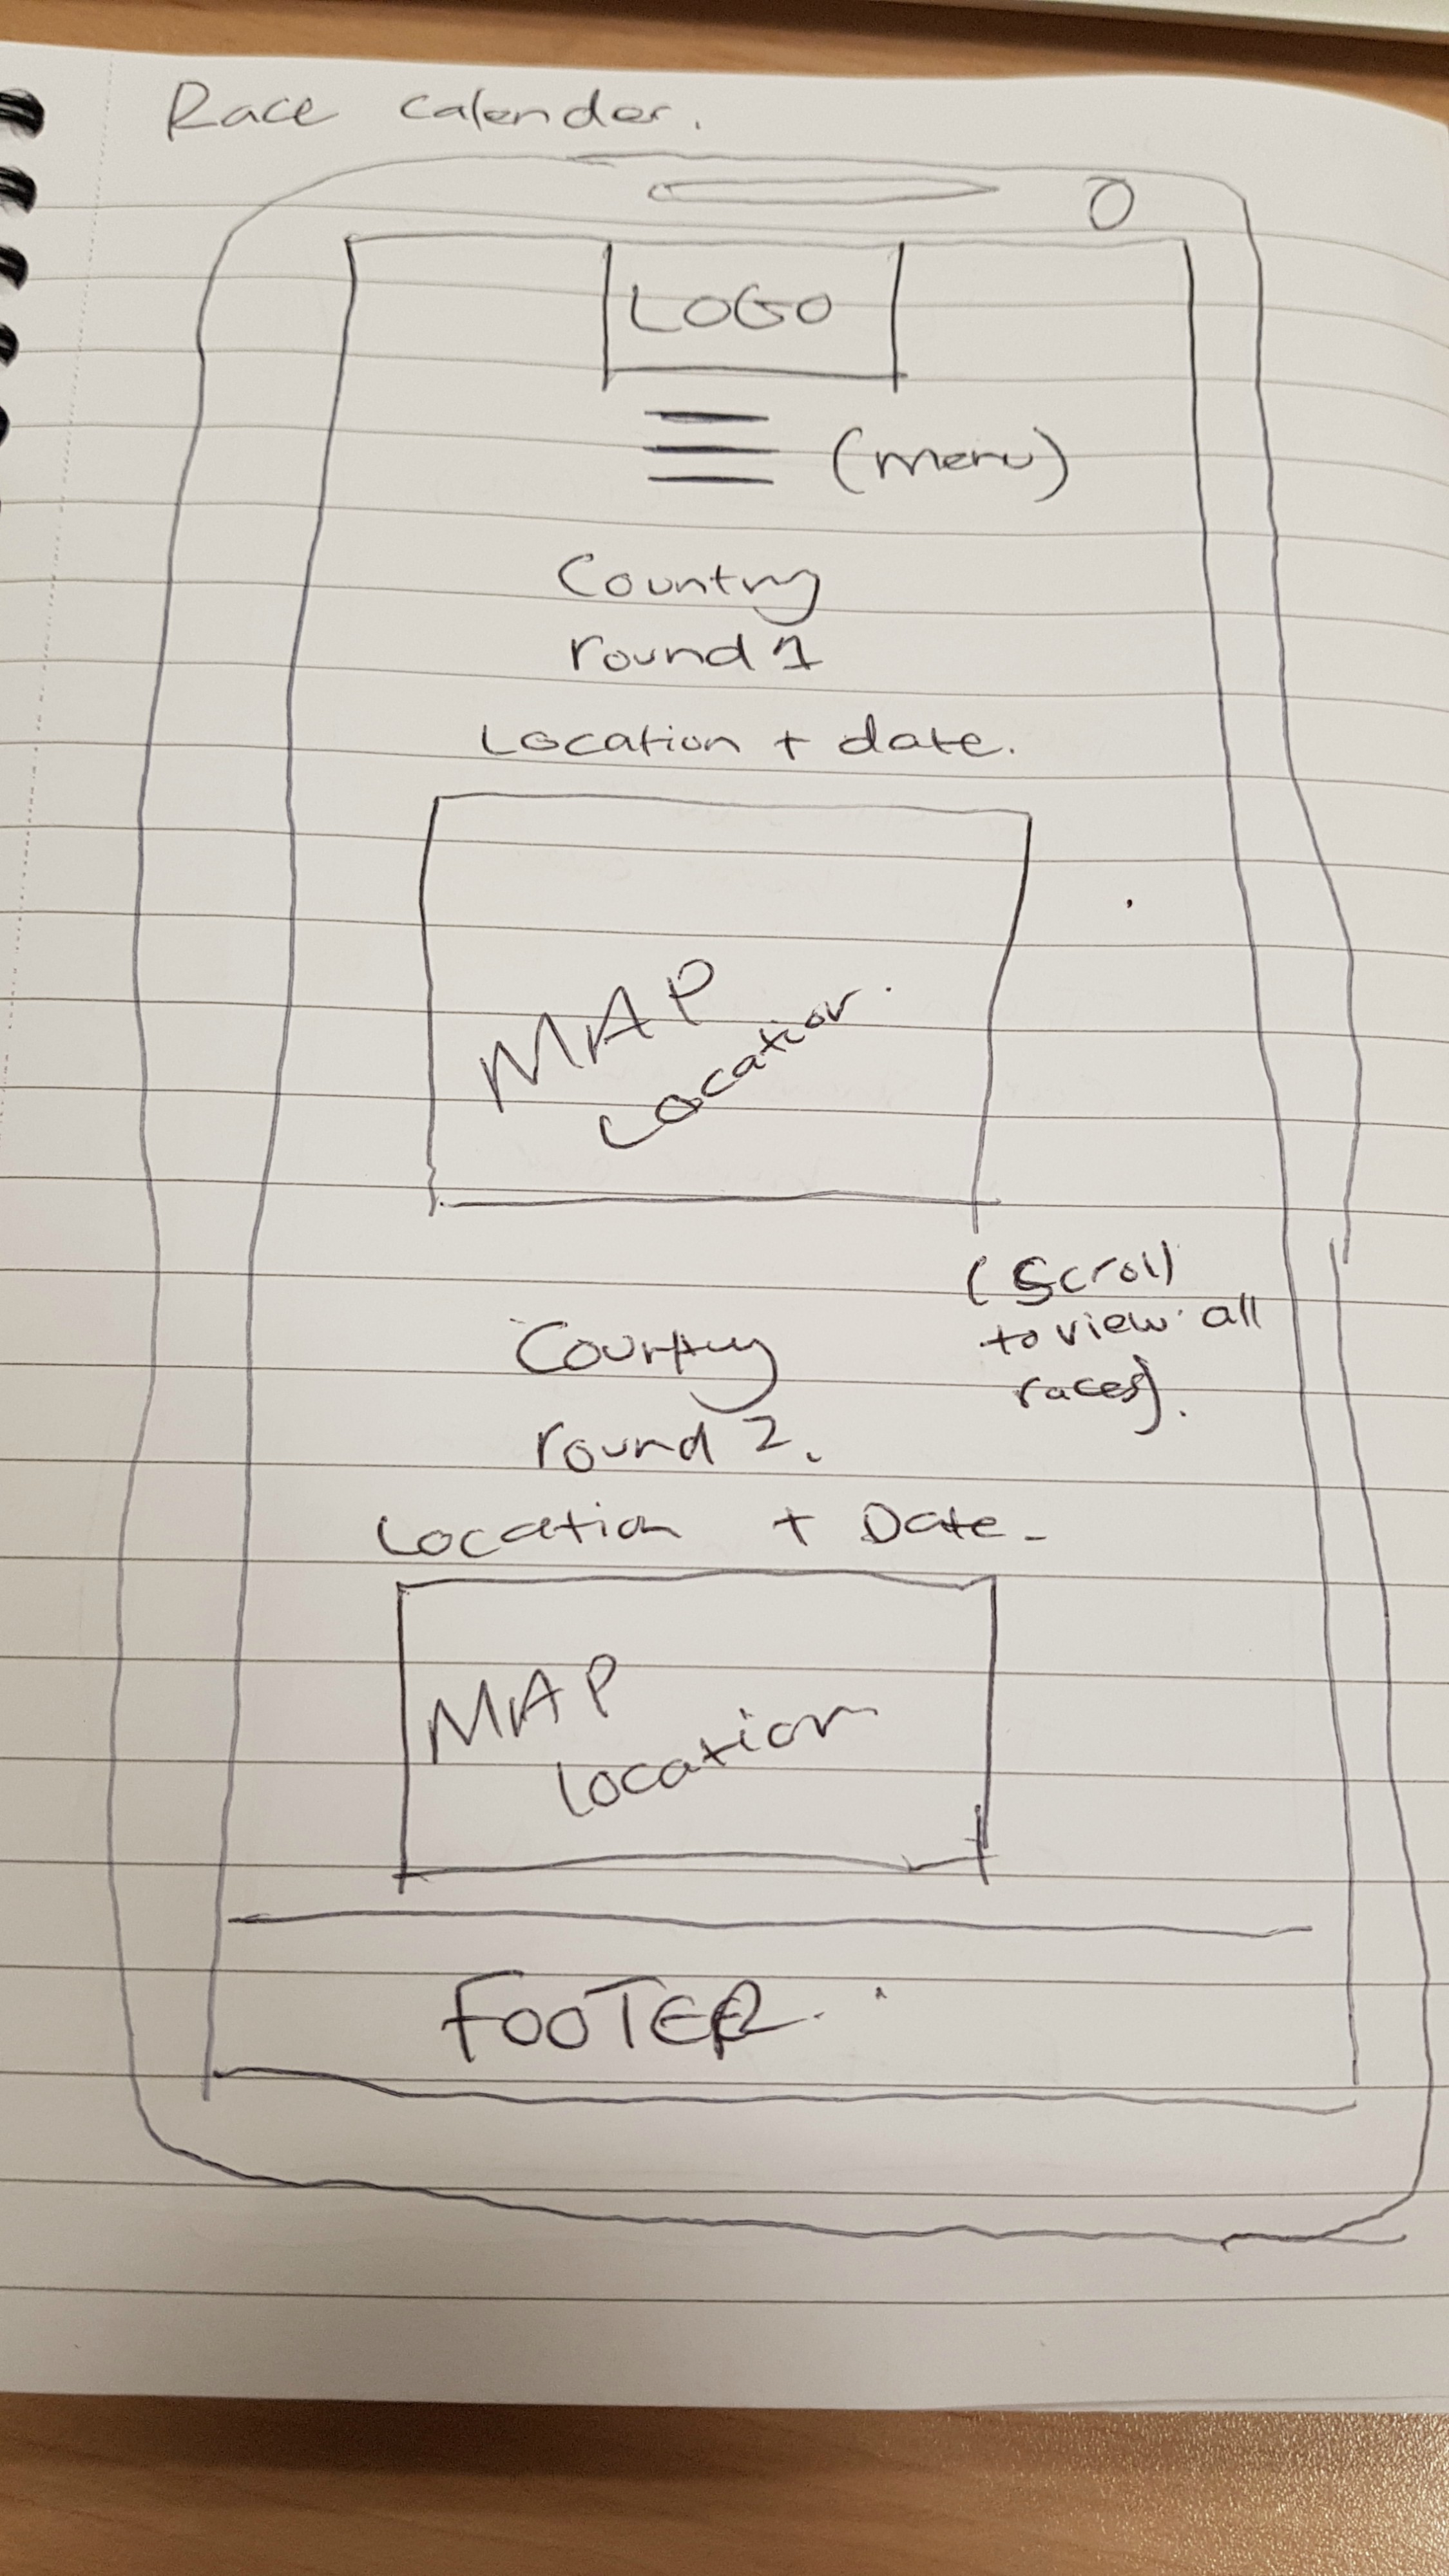 Race Calender.
LOGO
(menu)
Country
round 1
Location + date.
MAP
Location.
(Scroll
to view all
races).
Country
round 2.
Location + Date.
MAP
Location
FOOTER.